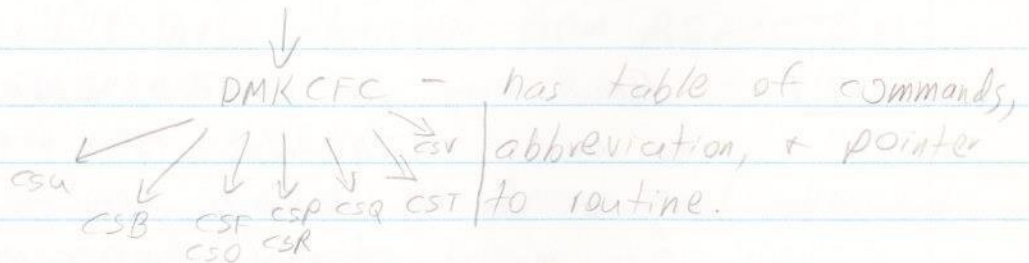 DMKCFC - has table of commands,
abbreviation, & pointer
to routine.
csv
csu
CSB
CSF CSP CSQ CST
CSO CSR